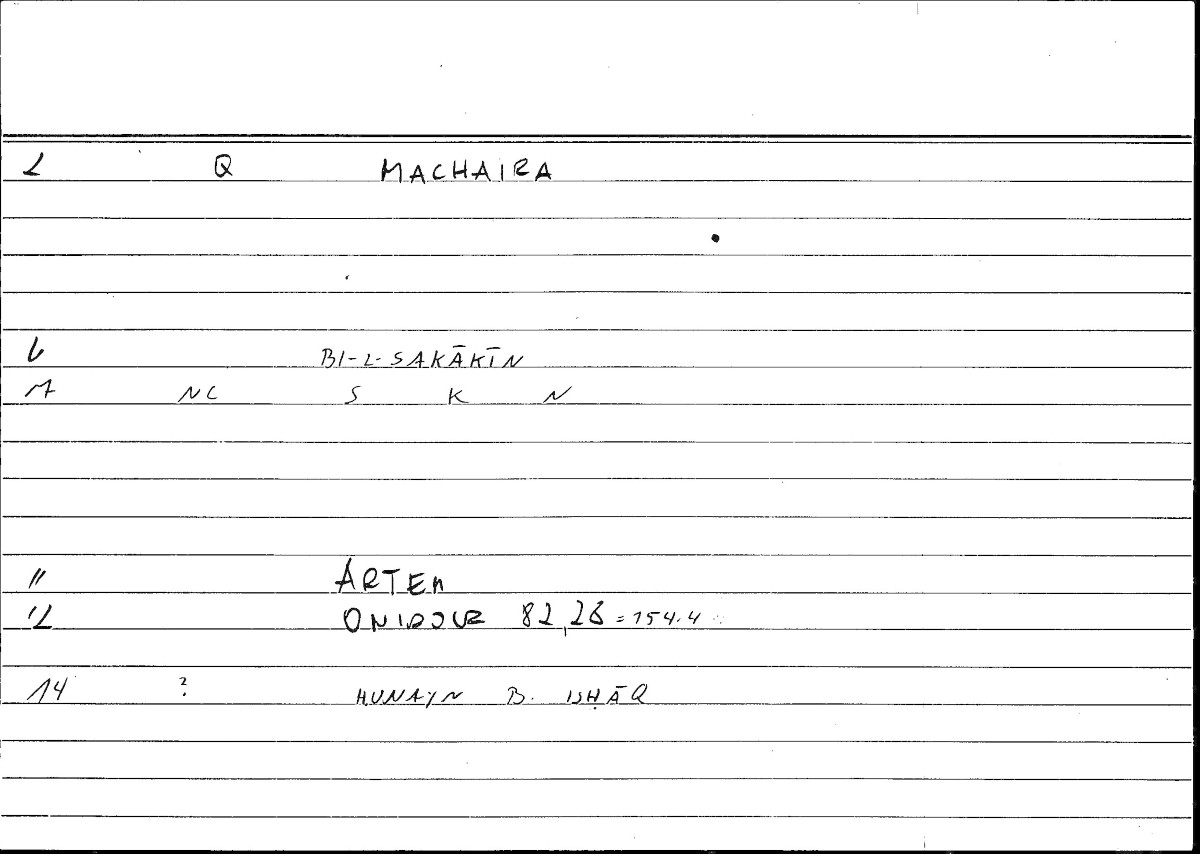 2 Q MACHAIRA
6 BI-L-SAKĀKĪN
7 NC S K N
11 ARTEM
12 ONIDOCR 82,28 = 154.4
14 ? HUNAYN B. ISḤĀQ